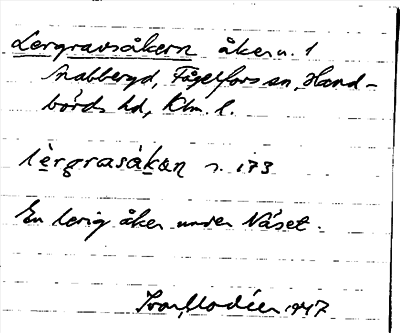 Lergravsåkern åker u. 1
Snabbergd, Fågelfors sn, Hand-
börds hd, Klm. l.
lèrgrasåkan s. 173
En lerig åker under Näset.
Ivar Modéer 1947